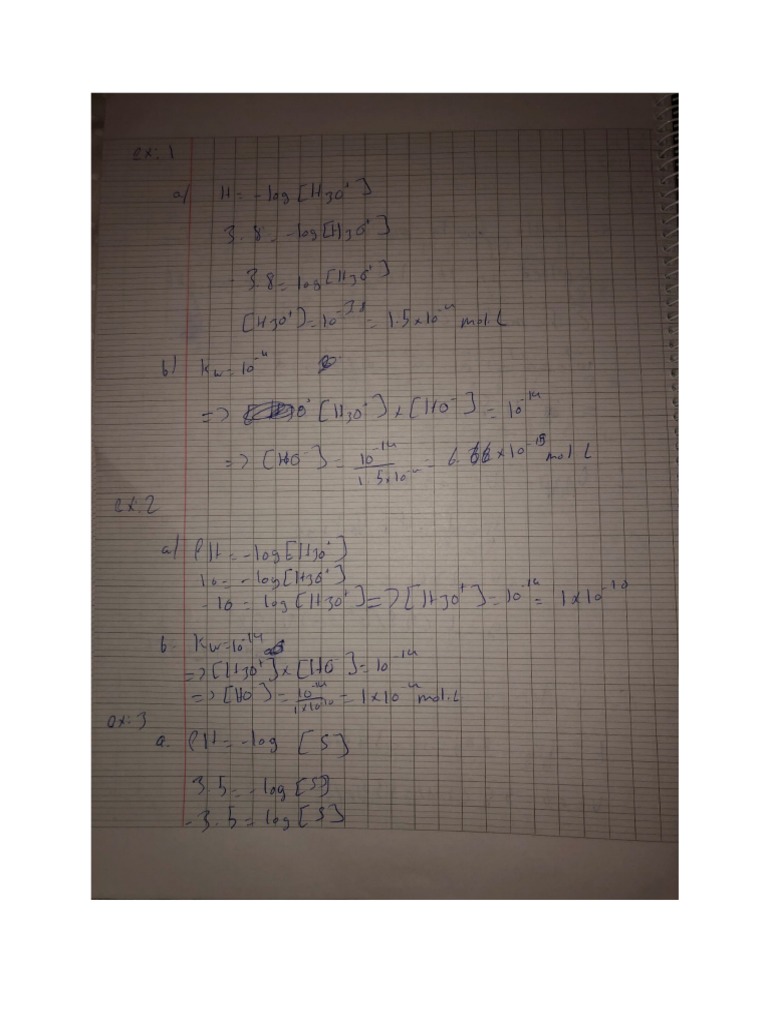 ex: 1
a) H = -log [H3O+]
3.8 = -log [H3O+]
-3.8 = log [H3O+]
[H3O+] = 10^-3.8 = 1.5 x 10^-4 mol.L
b) Kw = 10^-14
=> [H3O+] x [HO-] = 10^-14
=> [HO-] = 10^-14 / 1.5 x 10^-4 = 6.66 x 10^-13 mol.L
ex: 2
a) PH = -log [H3O+]
10 = -log [H3O+]
-10 = log [H3O+] => [H3O+] = 10^-10 = 1 x 10^-10
b. Kw = 10^-14
=> [H3O+] x [HO-] = 10^-14
=> [HO-] = 10^-14 / 1 x 10^-10 = 1 x 10^-4 mol.L
ex: 3
a. PH = -log [S]
3.5 = -log [S]
-3.5 = log [S]